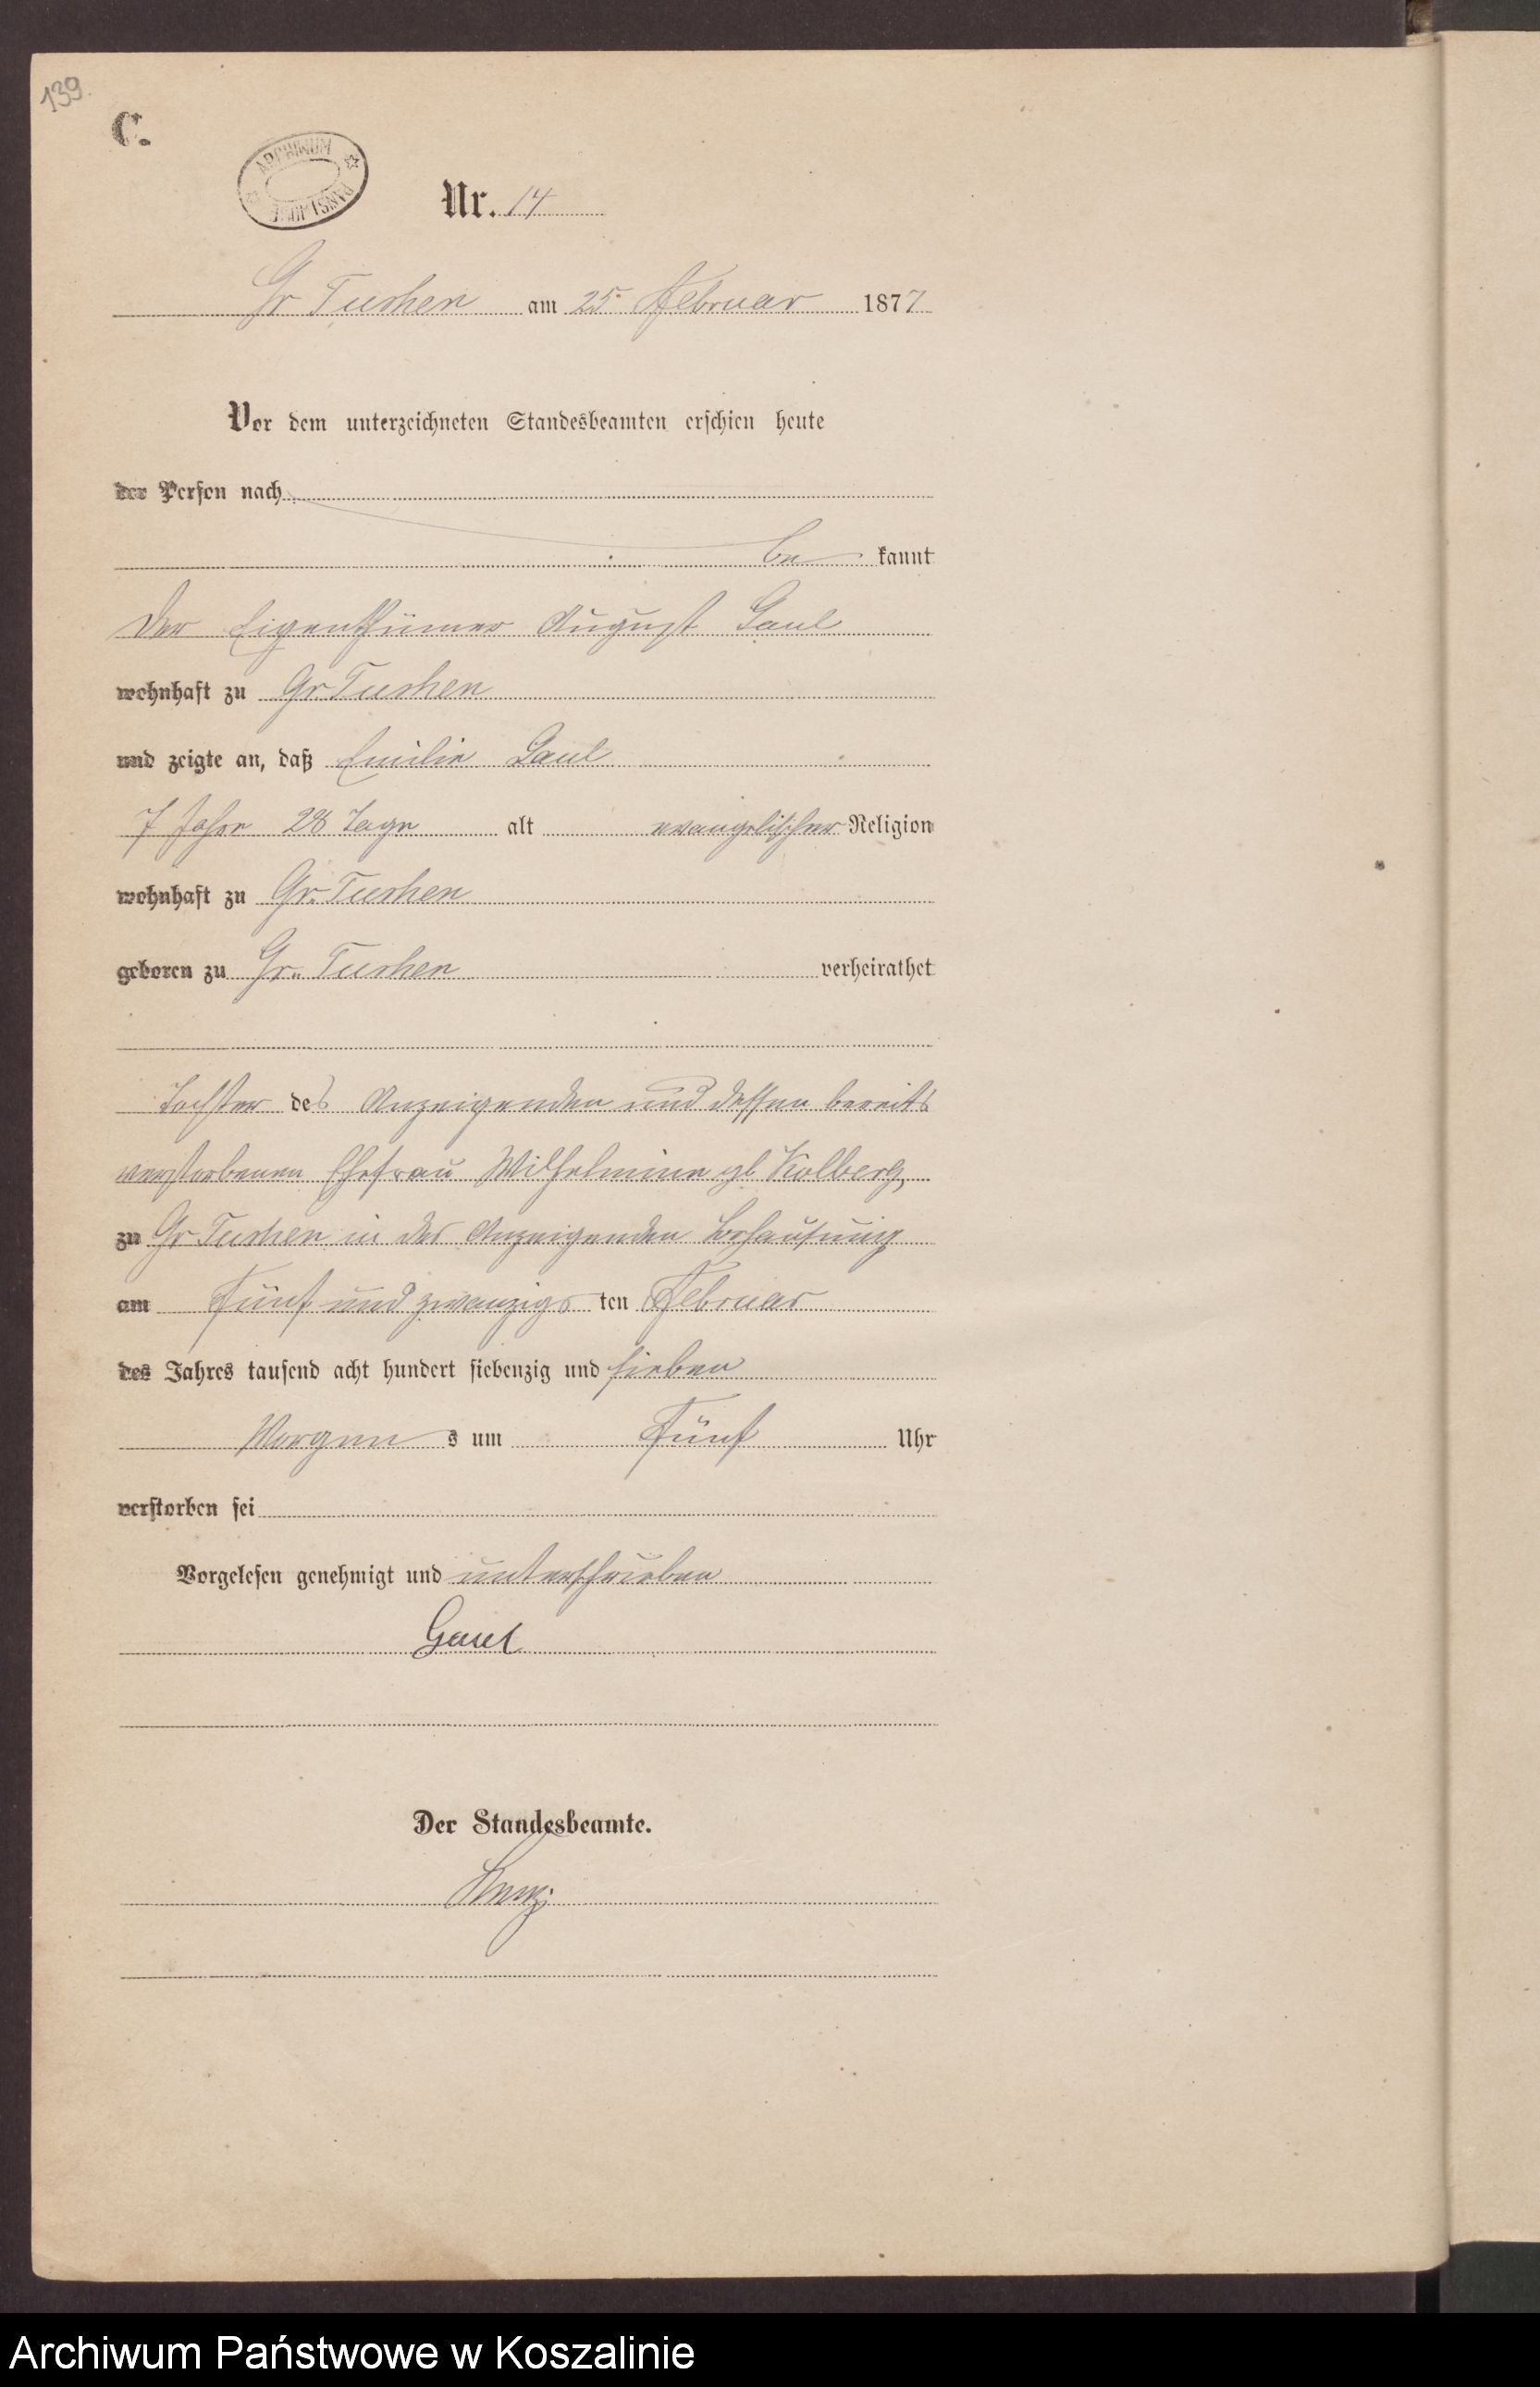 139.
C.
ARCHIWUM
PAŃSTWOWE
Nr. 14
Gr Tuchen am 25 Februar 1877
Vor dem unterzeichneten Standesbeamten erschien heute
der Person nach
be kannt
der Eigenthümer August Gaul
wohnhaft zu Gr. Tuchen
und zeigte an, daß Emilie Gaul
7 Jahre 28 Tage alt evangelischer Religion
wohnhaft zu Gr. Tuchen
geboren zu Gr. Tuchen verheirathet
Tochter des Anzeigenden und dessen bereits
verstorbenen Ehefrau Wilhelmine gb Kolberg,
zu Gr Tuchen in des Anzeigenden Behausung
am Fünf und zwanzigs ten Februar
des Jahres tausend acht hundert siebenzig und sieben
Morgen s um Fünf Uhr
verstorben sei
Vorgelesen genehmigt und unterschrieben
Gaul
Der Standesbeamte.
Archiwum Państwowe w Koszalinie